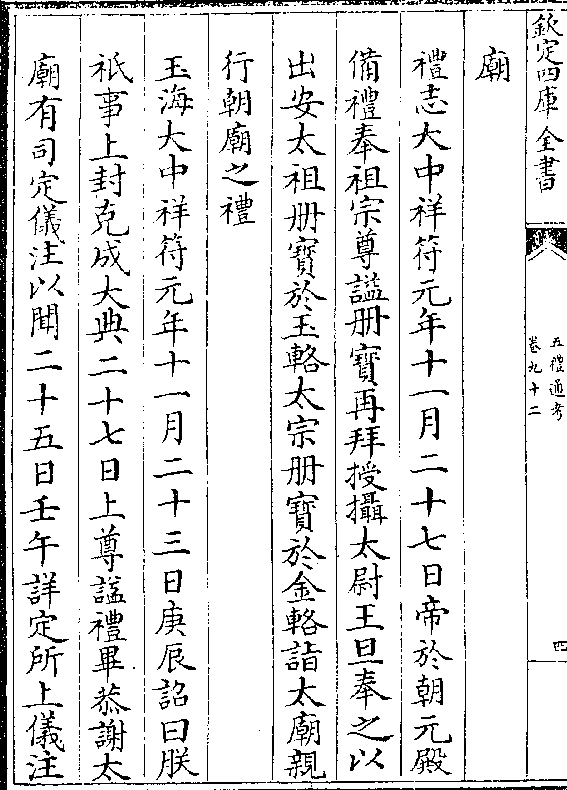 欽定四庫全書
五禮通考
卷九十二
四
廟
禮志大中祥符元年十一月二十七日帝於朝元殿
備禮奉祖宗尊諡册寶再拜授攝太尉王旦奉之以
出安太祖册寶於玉輅太宗册寶於金輅詣太廟親
行朝廟之禮
玉海大中祥符元年十一月二十三日庚辰詔曰朕
祇事上封克成大典二十七日上尊諡禮畢恭謝太
廟有司定儀注以聞二十五日壬午詳定所上儀注